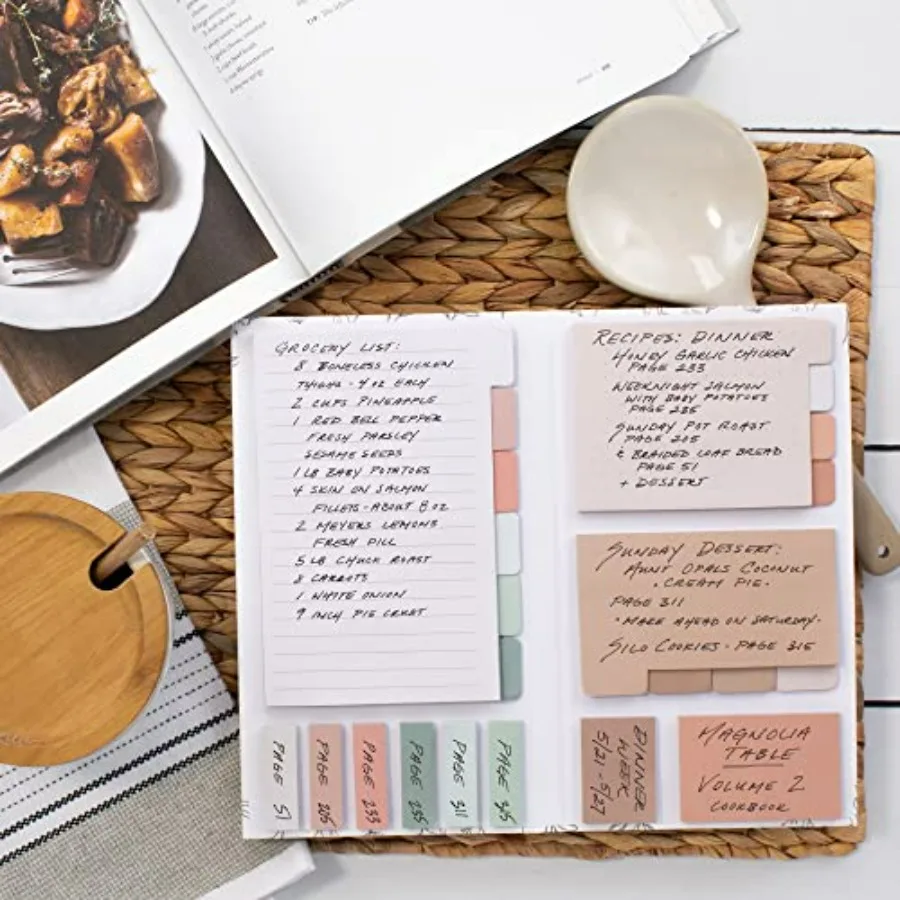 GROCERY LIST:
8 BONELESS CHICKEN
THIGHS - 4 OZ EACH
2 CUPS PINEAPPLE
1 RED BELL PEPPER
FRESH PARSLEY
SESAME SEEDS
1 LB BABY POTATOES
4 SKIN ON SALMON
FILLETS - ABOUT 8 OZ
2 MEYERS LEMONS
FRESH DILL
5 LB CHUCK ROAST
8 CARROTS
1 WHITE ONION
9 INCH PIE CRUST
RECIPES: DINNER
HONEY GARLIC CHICKEN
PAGE 233
WEEKNIGHT SALMON
WITH BABY POTATOES
PAGE 235
SUNDAY POT ROAST
PAGE 205
& BRAIDED LOAF BREAD
PAGE 51
+ DESSERT
SUNDAY DESSERT:
AUNT OPALS COCONUT
· CREAM PIE ·
PAGE 311
· MAKE AHEAD ON SATURDAY ·
SILO COOKIES - PAGE 315
PAGE 51
PAGE 205
PAGE 233
PAGE 235
PAGE 311
PAGE
DINNER
WEEK
5/21 - 5/27
MAGNOLIA
TABLE
VOLUME 2
COOKBOOK